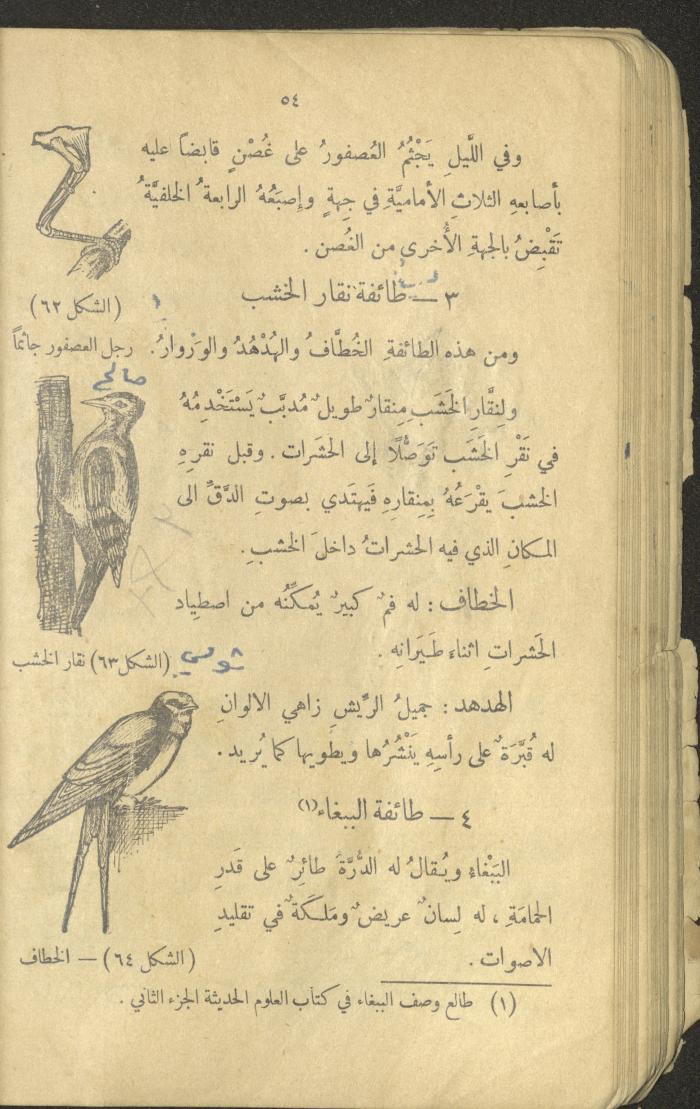 ٥٤
وفي اللَّيلِ يَجْثُمُ العُصفورُ على غُصْنٍ قابضاً عليه
بأصابعهِ الثلاثِ الأماميَّةِ في جِهةٍ وإصبَعُهُ الرابعةُ الخلفيَّةُ
تَقْبِضُ بالجهةِ الأُخرى من الغُصن .
(الشكل ٦٢)
رجل العصفور جاثماً
٣ — طائفة نقار الخشب
ومن هذه الطائفةِ الخُطَّافُ والهُدْهُدُ والوَرْوارُ.
صالح
ولِنقَّارِ الخَشَبِ مِنقارٌ طويلٌ مُدبَّبٌ يَسْتَخْدِمُهُ
في نَقْرِ الخَشَب تَوَصُّلًا إلى الحشَرات . وقبل نقرِهِ
الخشبَ يقْرَعُهُ بِمِنقارِهِ فَيهتَدي بصوتِ الدَّقِّ الى
المكانِ الذي فيه الحشراتُ داخلَ الخشبِ.
الخطاف : له فمٌ كبيرٌ يُمكِّنُه من اصطِياد
الحَشراتِ اثناء طَيَرانِه .
(الشكل ٦٣) نقار الخشب
الهدهد : جميلُ الرِّيشِ زاهي الالوانِ
له قُبَّرَةٌ على رأسِهِ يَنْشُرُها ويطويها كما يُريد .
٤ — طائفة الببغاء (١)
البَبْغاء ويُقالُ له الدُّرَّةُ طائرٌ على قَدرِ
الحمامَةِ ، له لِسانٌ عريضٌ ومَلَكَةٌ في تقليدِ
الاصوات .
(الشكل ٦٤) — الخطاف
(١) طالع وصف الببغاء في كتاب العلوم الحديثة الجزء الثاني .